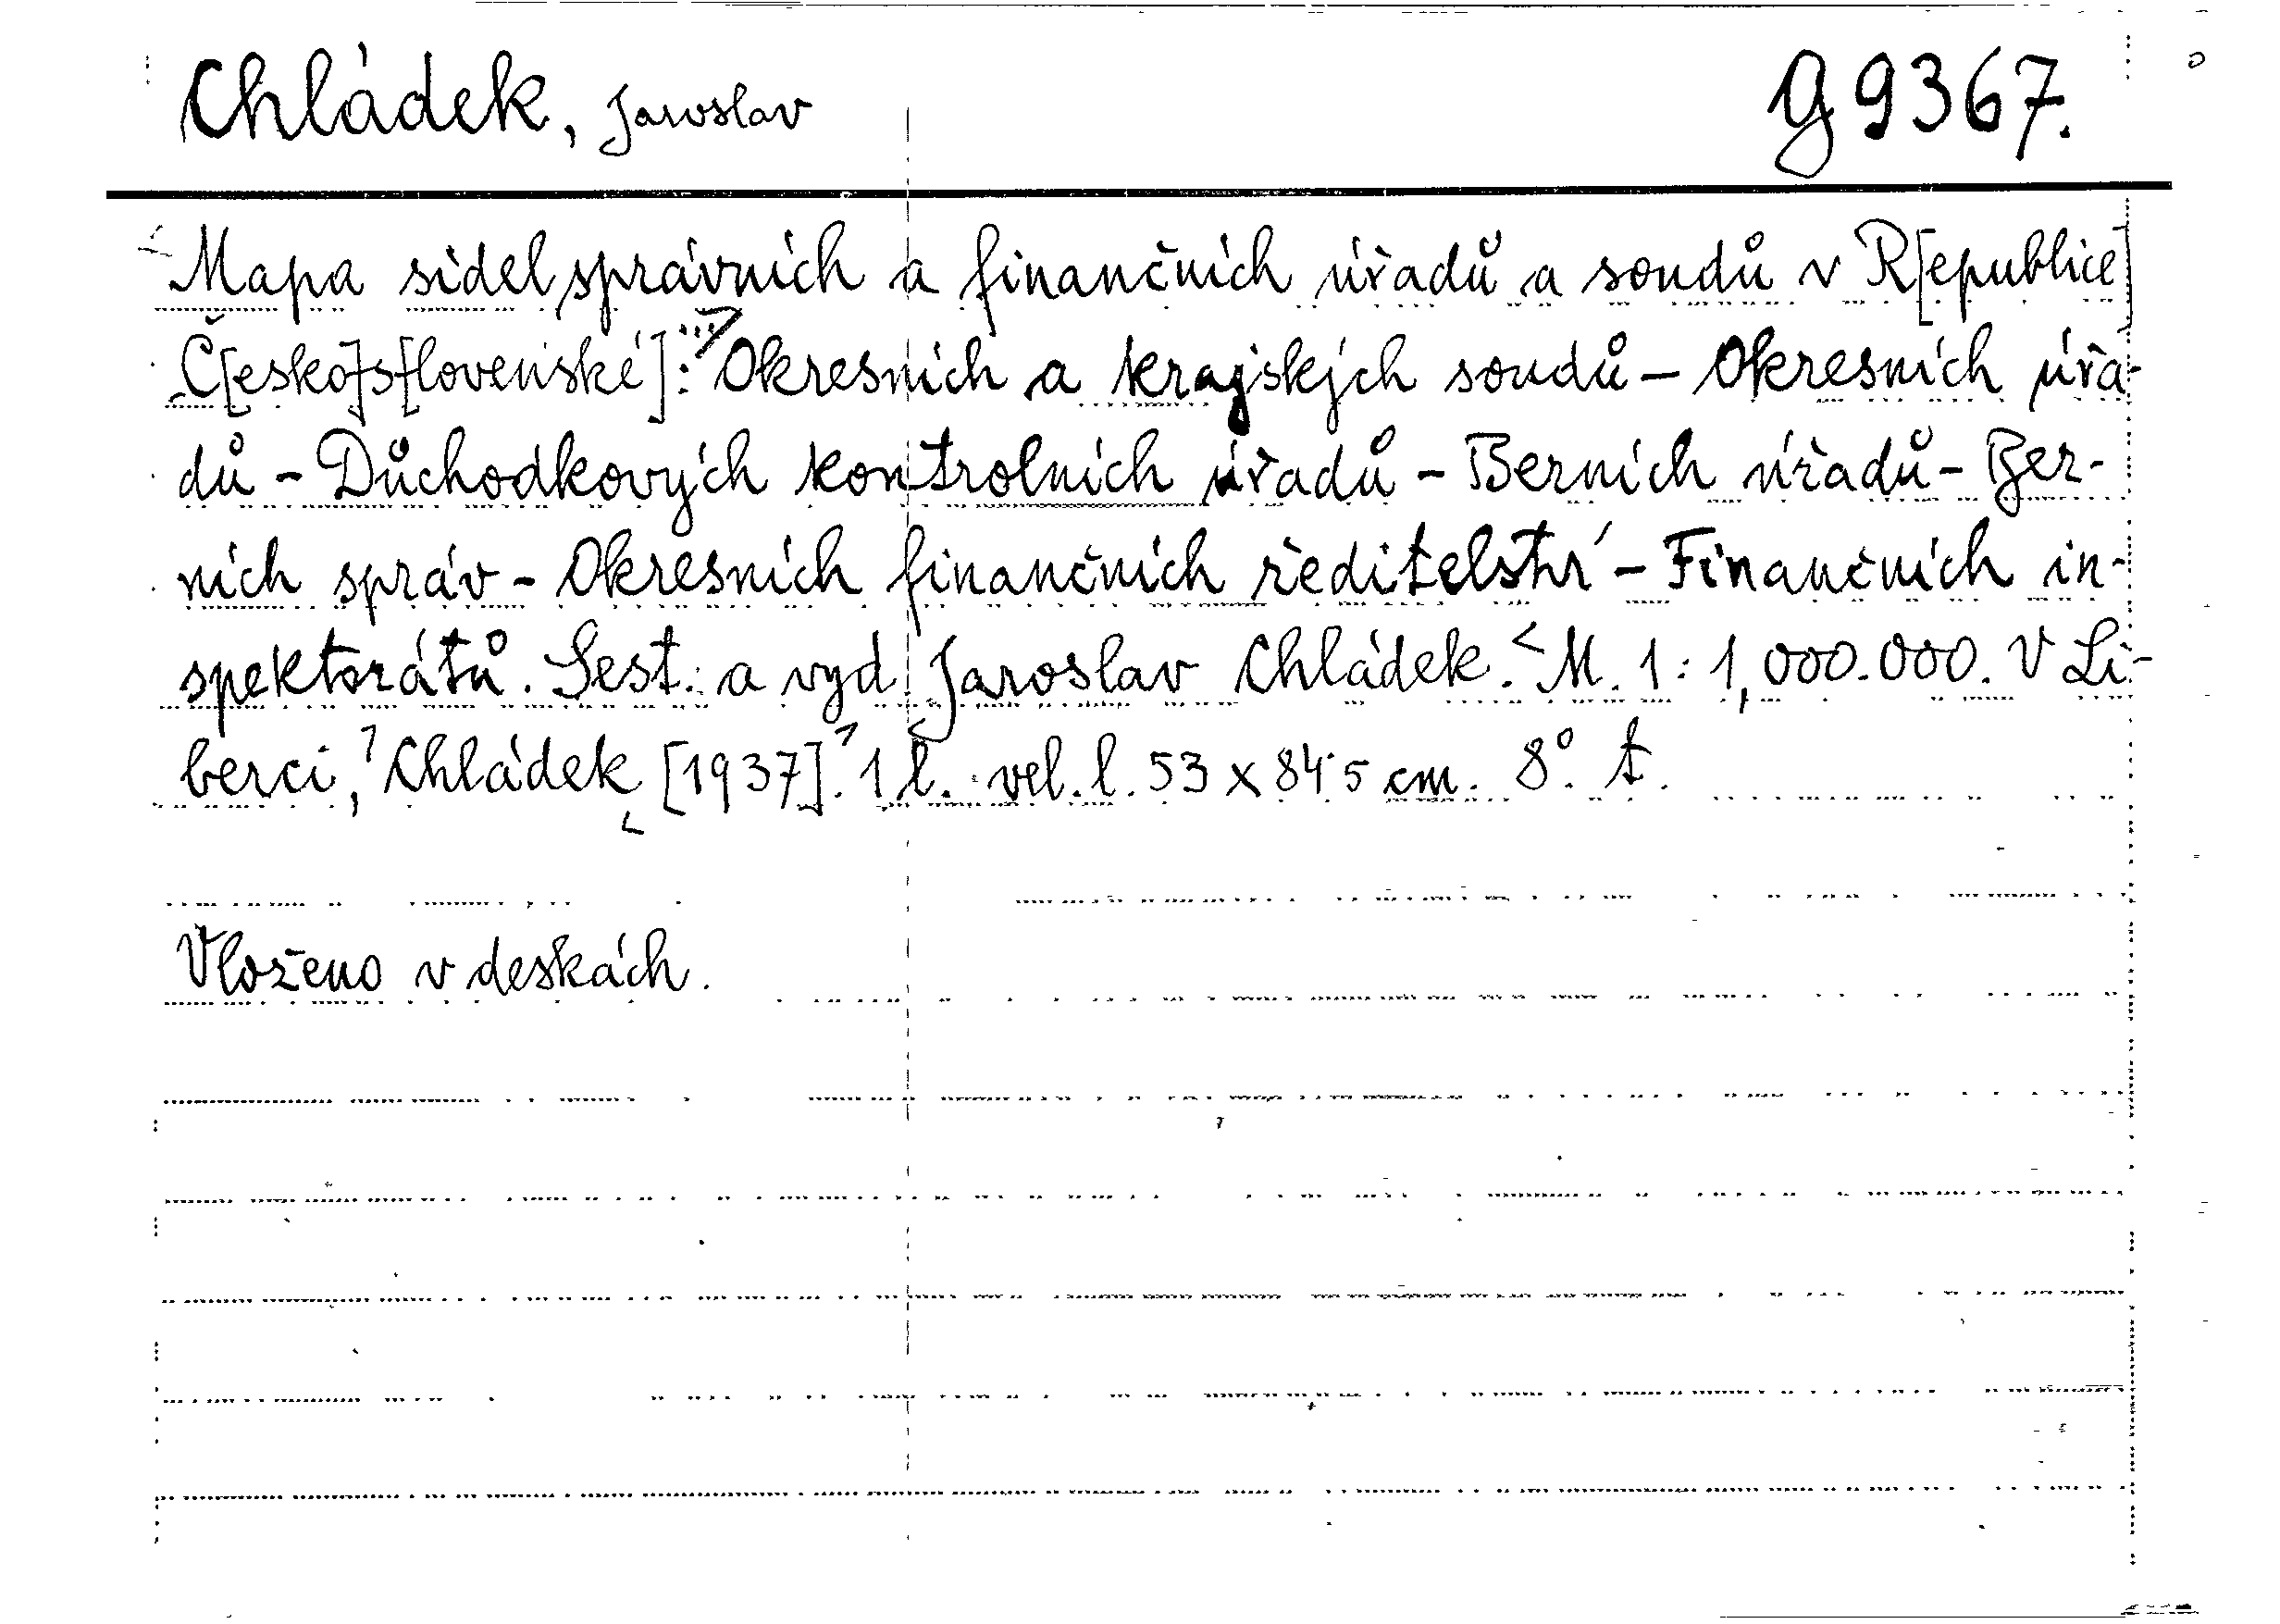 Chládek, Jaroslav
g 9367.
Mapa sídel správních a finančních úřadů a soudů v R[epublice]
Č[esko]s[lovenské]: Okresních a krajských soudů – Okresních úřa-
dů – Důchodkových kontrolních úřadů – Berních úřadů – Ber-
ních správ – Okresních finančních ředitelství – Finančních in-
spektorátů. Sest. a vyd. Jaroslav Chládek. M. 1 : 1,000.000. V Li-
berci, Chládek [1937]. 1 l. vel. l. 53 x 84·5 cm. 8°. t.
Vloženo v deskách.